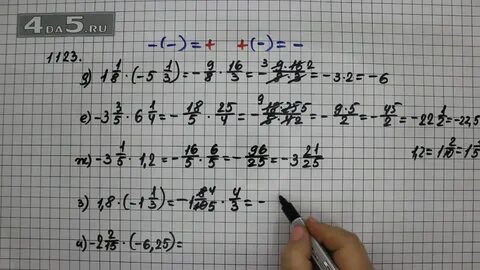 4DA5.RU
-(-) = +   +(-) = -
1123.
д) 1 1/8 · (-5 1/3) = - 9/8 · 16/3 = - 3 9·16 2 / 8·3 = -3·2 = -6
е) -3 3/5 · 6 1/4 = - 18/5 · 25/4 = - 9 18·25 5 / 5·4 2 = - 9·5/2 = - 45/2 = -22 1/2 = -22,5
ж) -3 1/5 · 1,2 = - 16/5 · 6/5 = - 96/25 = -3 21/25   1,2 = 1 2/10 = 1
з) 1,8 · (-1 1/3) = -1 8 4/10 5 · 4/3 = -
и) -2 2/15 · (-6,25) =